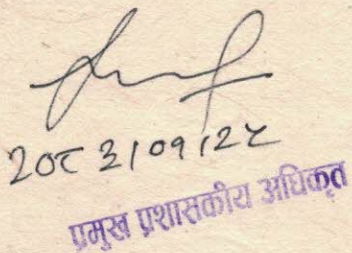 २०८३/०१/२४
प्रमुख प्रशासकीय अधिकृत